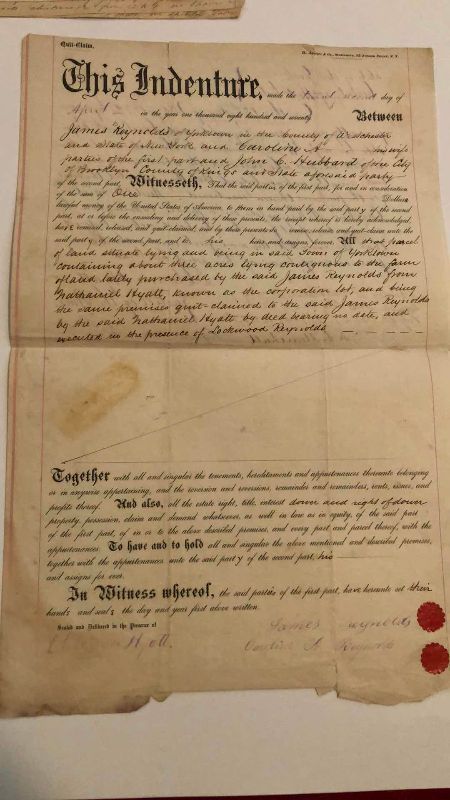 Quit-Claim.
This Indenture, made the second day of
April in the year one thousand eight hundred and seventy Between
James Reynolds of Yorktown in the County of Westchester
and State of New York and Caroline A his wife
parties of the first part and John C. Hubbard of the City
of Brooklyn County of Kings and State aforesaid party
of the second part, Witnesseth, That the said parties of the first part, for and in consideration
of the sum of One Dollars
lawful money of the United States of America, to them in hand paid by the said party of the second
part, at or before the ensealing and delivery of these presents, the receipt whereof is hereby acknowledged,
have remised, released, and quit-claimed, and by these presents do remise, release, and quit-claim unto the
said party of the second part, and to his heirs and assigns, forever. All that parcel
of land situate lying and being in said Town of Yorktown
containing about three acres lying contiguous to the farm
of land lately purchased by the said James Reynolds from
Nathaniel Hyatt, known as the corporation lot, and being
the same premises quit-claimed to the said James Reynolds
by the said Nathaniel Hyatt by deed bearing no date, and
executed in the presence of Lockwood Reynolds
Together with all and singular the tenements, hereditaments and appurtenances thereunto belonging
or in anywise appertaining, and the reversion and reversions, remainder and remainders, rents, issues, and
profits thereof. And also, all the estate right, title, interest dower and right of dower
property, possession, claim and demand whatsoever, as well in law as in equity, of the said part
of the first part, of in or to the above described premises, and every part and parcel thereof, with the
appurtenances To have and to hold all and singular the above mentioned and described premises,
together with the appurtenances unto the said party of the second part, his
and assigns for ever.
In Witness whereof, the said parties of the first part, have hereunto set their
hands and seals the day and year first above written.
Sealed and Delivered in the Presence of
James Reynolds
Hyatt.
Caroline A Reynolds